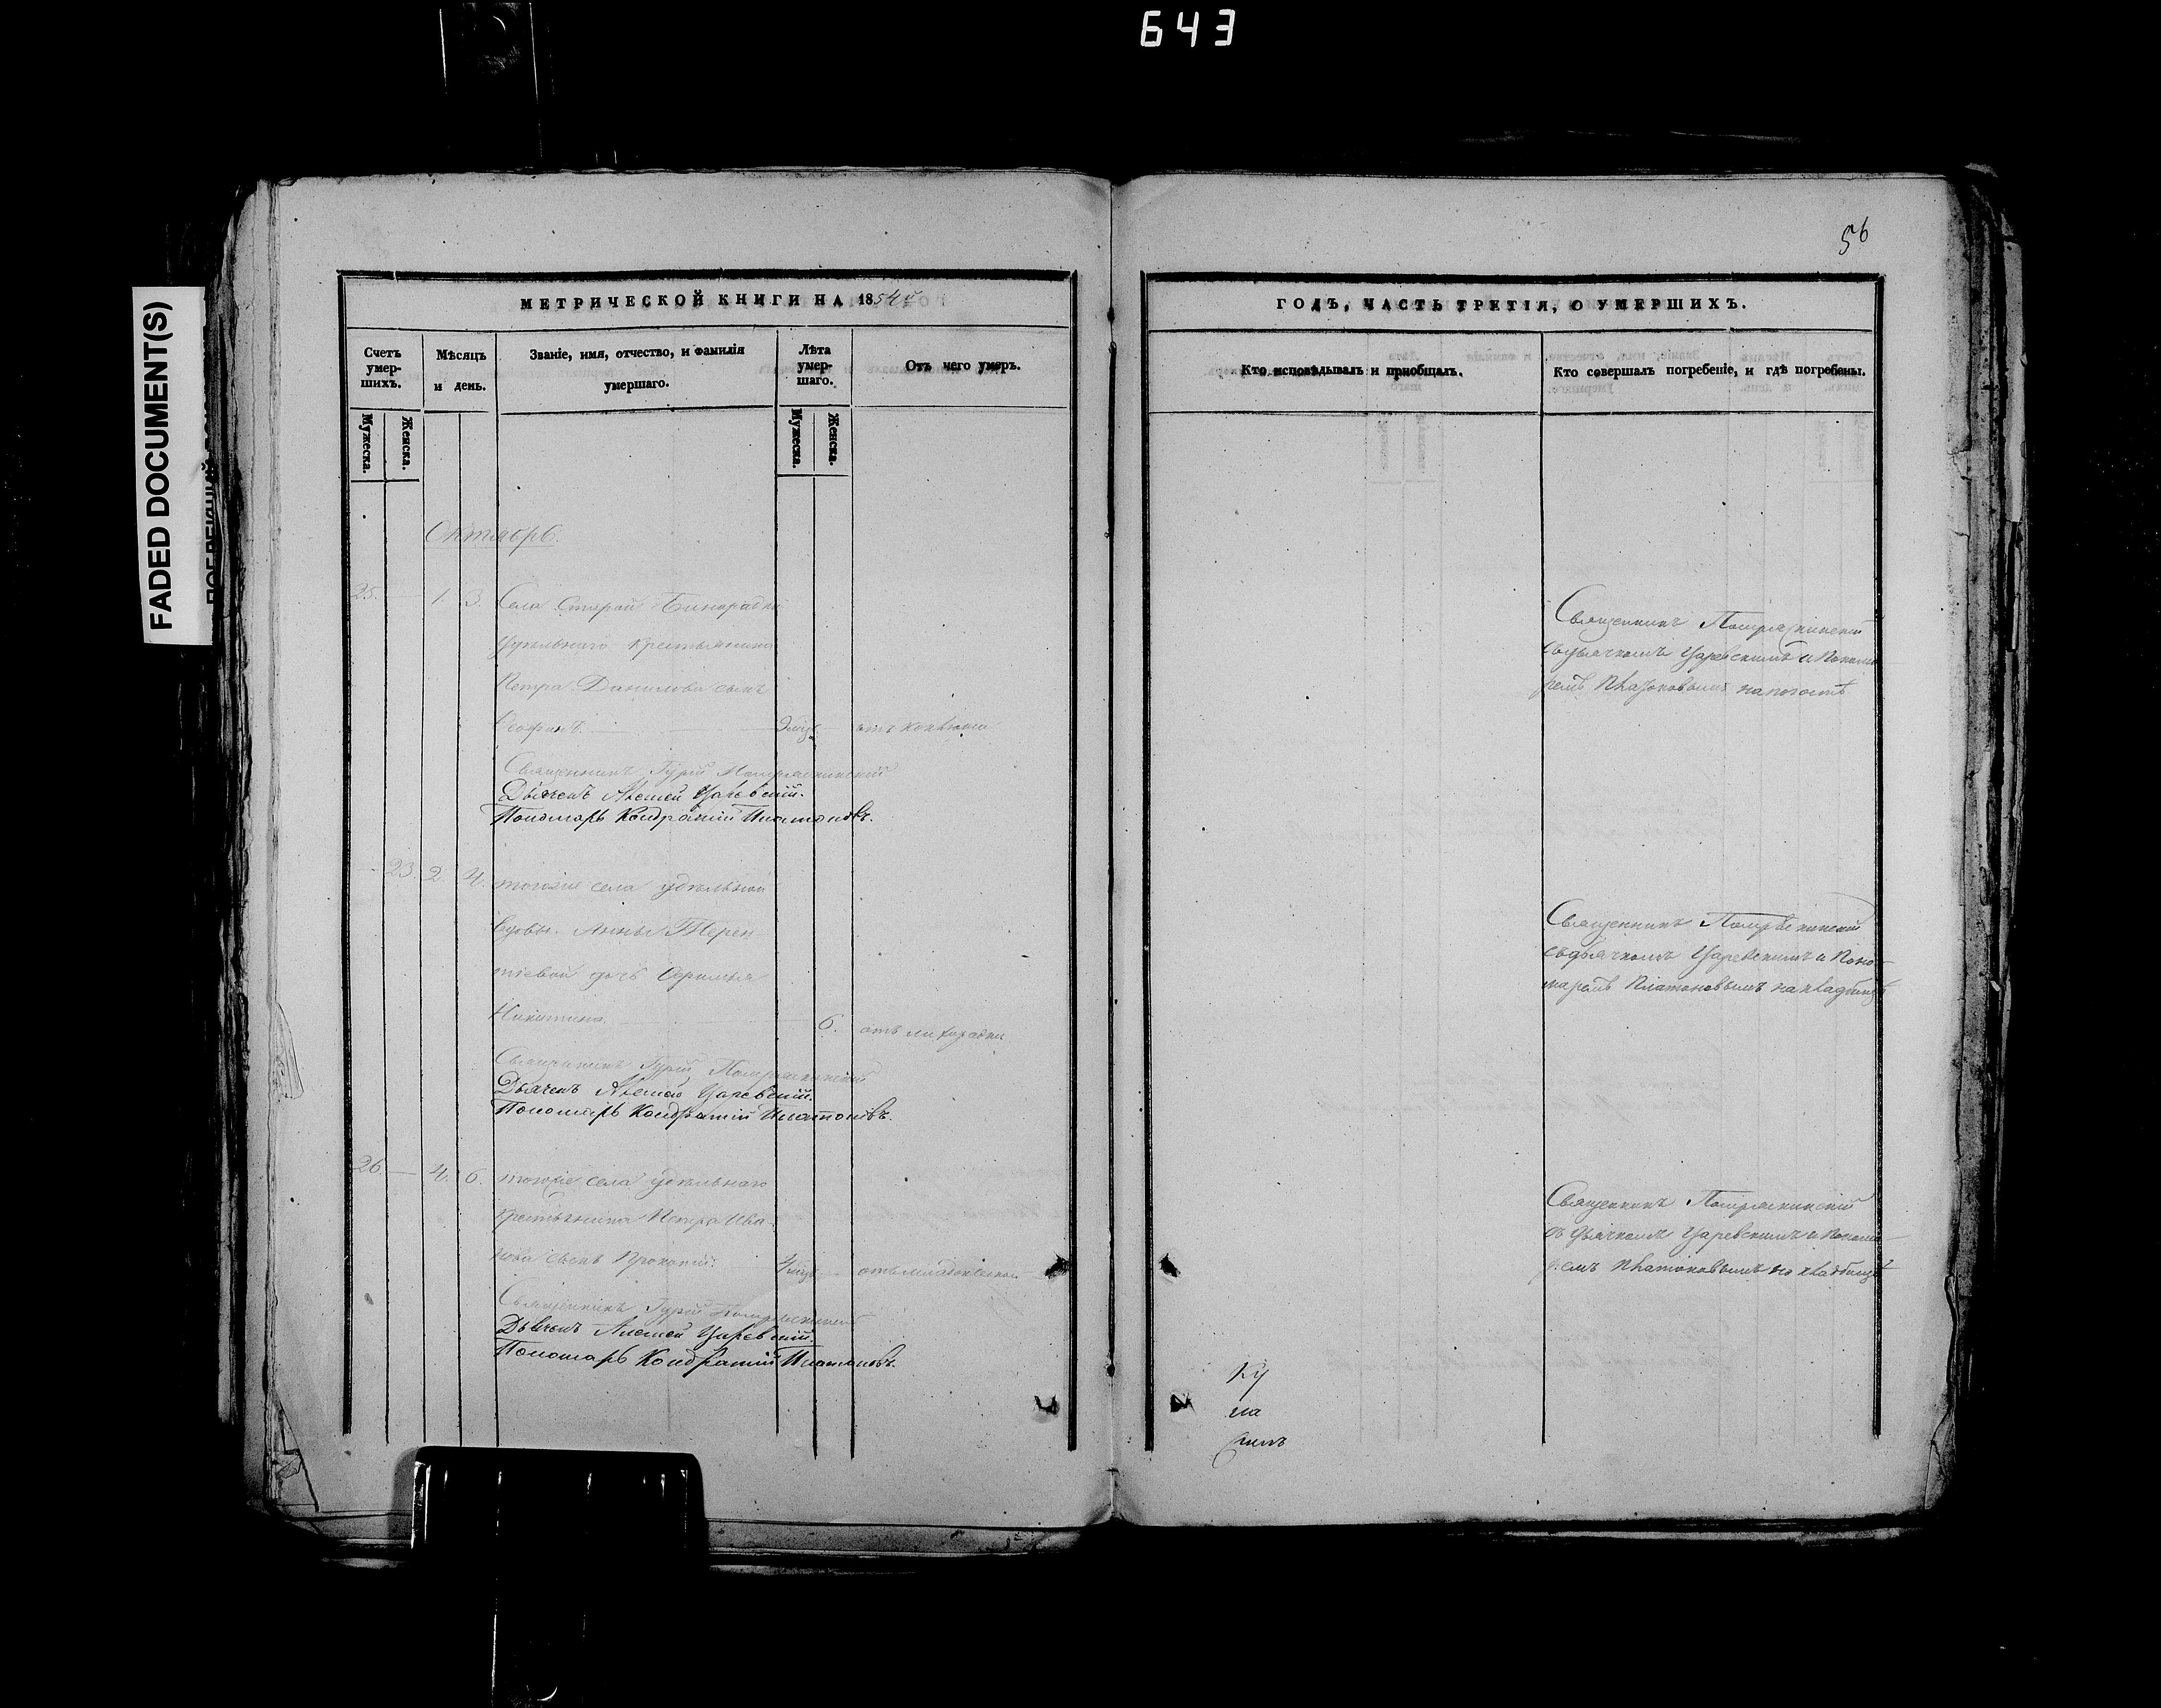 643
FADED DOCUMENT(S)
56
МЕТРИЧЕСКОЙ КНИГИ НА 1854й
ГОДЪ, ЧАСТЬ ТРЕТІЯ, О УМЕРШИХЪ.
Счетъ умер-шихъ.
Мѣсяцъ и день.
Званіе, имя, отчество, и фамилія умершаго.
Лѣта умер-шаго.
Отъ чего умеръ.
Кто исповѣдывалъ и пріобщалъ.
Кто совершалъ погребеніе, и гдѣ погребены.
Мужеска.
Женска.
Мужеска.
Женска.
Октябрь.
25. — 1. 3. Села Старой Бинарадки
удѣльнаго крестьянина
Петра Данилова сынъ
отъ
Священникъ Гурій
Дьячекъ Алексей Царевскій.
Пономарь Кондратій Платоновъ.
Священникъ
съ дьячкомъ Царевскимъ и Понома-
ремъ Платоновымъ на погостѣ
23. 2. 4. тогоже села удѣльной
вдовы Анны Терен-
тіевой дочь
Никитина 6. отъ лихорадки
Священникъ Гурій
Дьячекъ Алексей Царевскій.
Пономарь Кондратій Платоновъ.
Священникъ
съ дьячкомъ Царевскимъ и Поно-
маремъ Платоновымъ на кладбищѣ
26. — 4. 6. тогоже села удѣльнаго
крестьянина Петра Ива-
нова сынъ Прокопій.
отъ
Священникъ Гурій
Дьячекъ Алексей Царевскій.
Пономарь Кондратій Платоновъ.
Священникъ
съ дьячкомъ Царевскимъ и Понома-
ремъ Платоновымъ на кладбищѣ
Ку